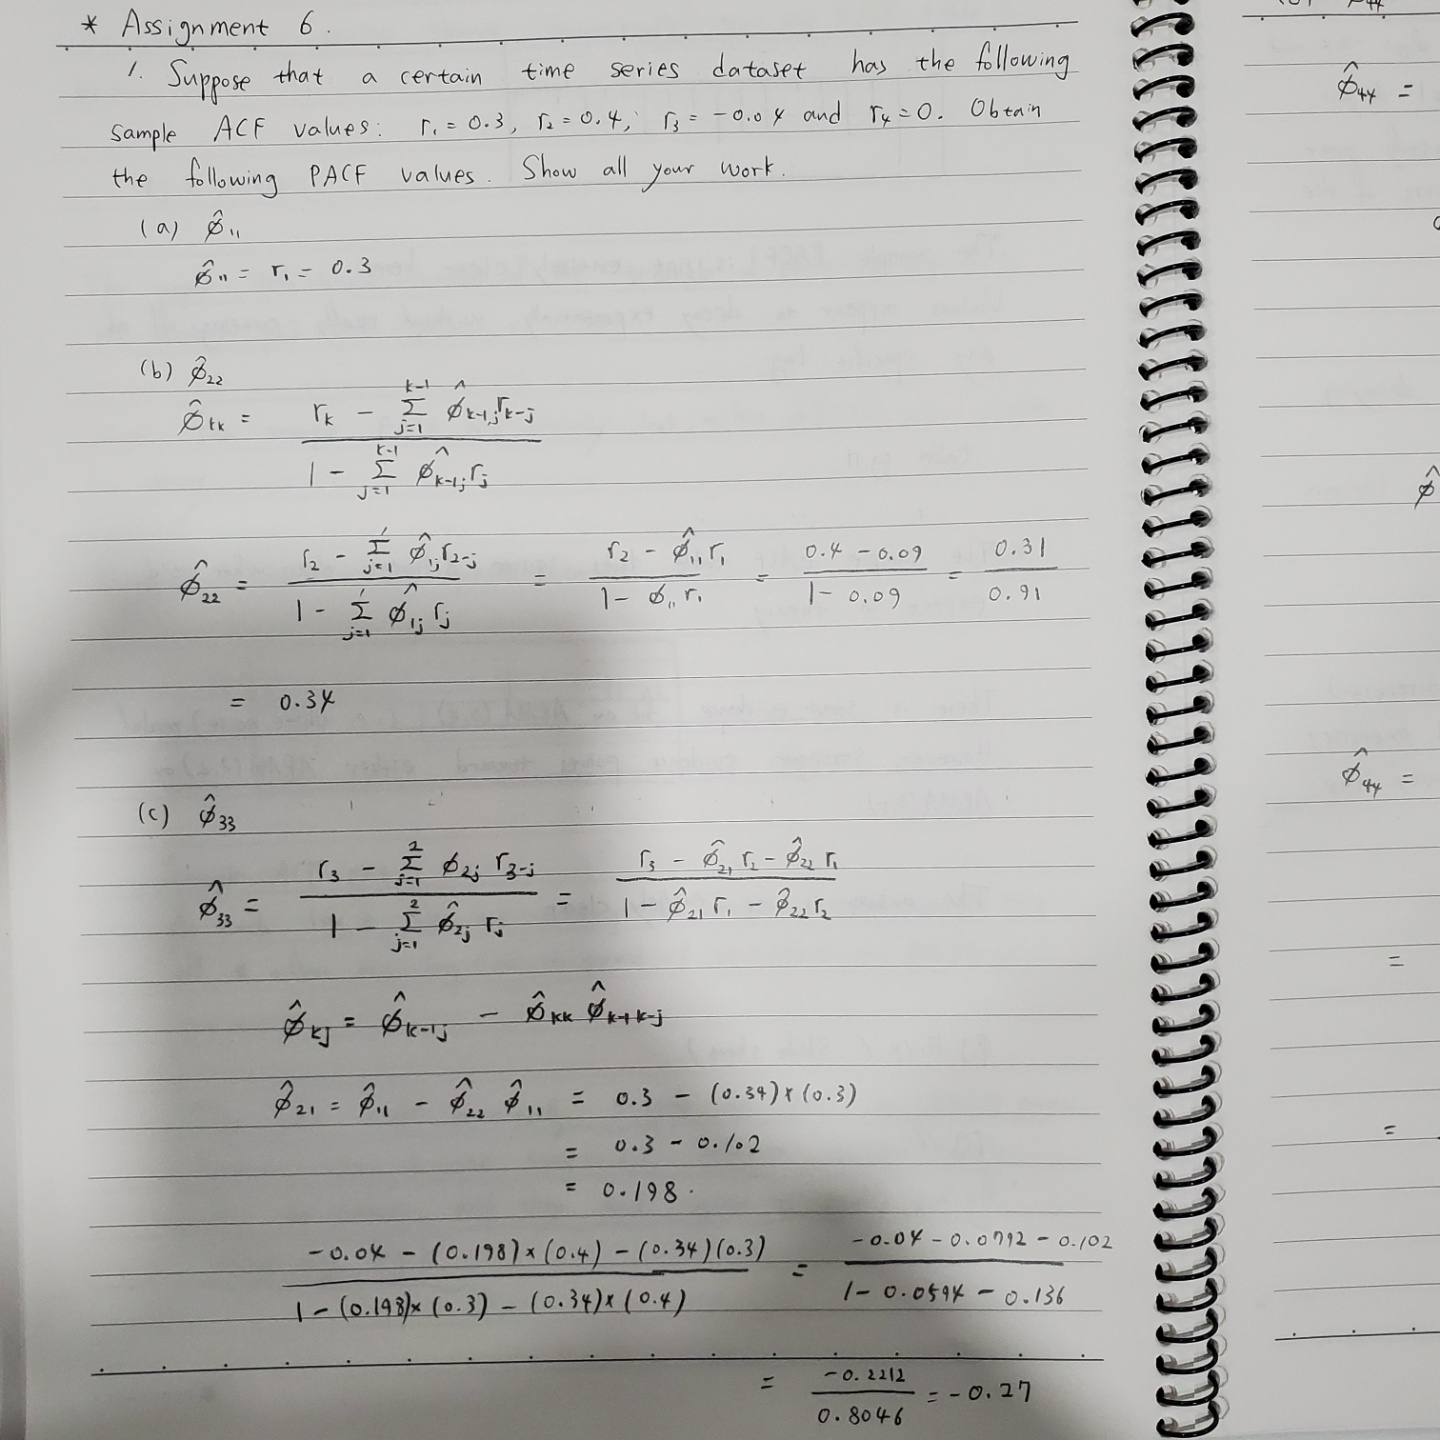 * Assignment 6.
1. Suppose that a certain time series dataset has the following
sample ACF values: r₁ = 0.3, r₂ = 0.4, r₃ = -0.04 and r₄ = 0. Obtain
the following PACF values. Show all your work.
(a) φ̂₁₁
φ̂₁₁ = r₁ = 0.3
(b) φ̂₂₂
φ̂kk = (rk - Σ_{j=1}^{k-1} φ̂k-1,j rk-j) / (1 - Σ_{j=1}^{k-1} φ̂k-1,j rj)
φ̂₂₂ = (r₂ - Σ_{j=1}^{1} φ̂₁j r₂-j) / (1 - Σ_{j=1}^{1} φ̂₁j rj) = (r₂ - φ̂₁₁ r₁) / (1 - φ₁₁ r₁) = (0.4 - 0.09) / (1 - 0.09) = 0.31 / 0.91
= 0.34
(c) φ̂₃₃
φ̂₃₃ = (r₃ - Σ_{j=1}^{2} φ₂j r₃-j) / (1 - Σ_{j=1}^{2} φ̂₂j rj) = (r₃ - φ̂₂₁ r₂ - φ̂₂₂ r₁) / (1 - φ̂₂₁ r₁ - φ̂₂₂ r₂)
φ̂kj = φ̂k-1j - φ̂kk φ̂k-1 k-j
φ̂₂₁ = φ̂₁₁ - φ̂₂₂ φ̂₁₁ = 0.3 - (0.34)×(0.3)
= 0.3 - 0.102
= 0.198.
(-0.04 - (0.198)×(0.4) - (0.34)(0.3)) / (1 - (0.198)×(0.3) - (0.34)×(0.4)) = (-0.04 - 0.0792 - 0.102) / (1 - 0.0594 - 0.136)
= -0.2212 / 0.8046 = -0.27
φ̂₄₄ =
φ̂
φ̂₄₄ =
=
=